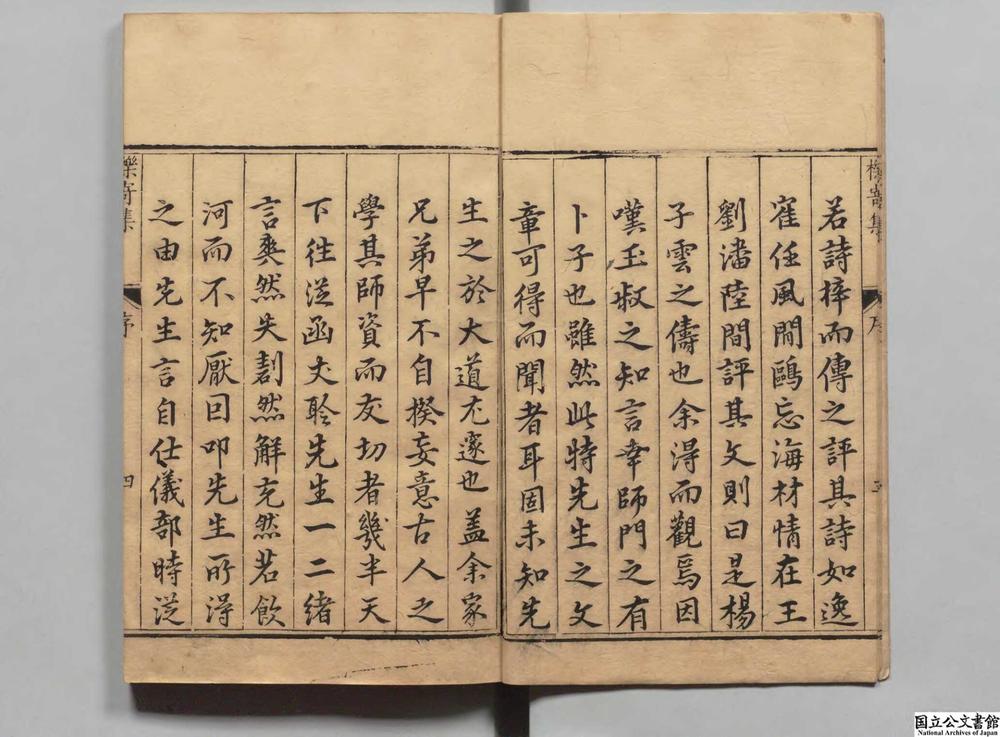 若詩梓而傳之評其詩如逸
寉任風閒鷗忘海材情在王
劉潘陸間評其文則曰是楊
子雲之儔也余淂而觀焉因
嘆玉叔之知言幸師門之有
卜子也雖然此特先生之文
章可得而聞者耳固未知先
生之於大道尤邃也盖余家
兄弟早不自揆妄意古人之
學其師資而友切者幾半天
下徃従函丈聆先生一二緒
言爽然失劃然解充然若飲
河而不知厭因叩先生所淂
之由先生言自仕儀部時従
檪寄集
序
四
国立公文書館
National Archives of Japan